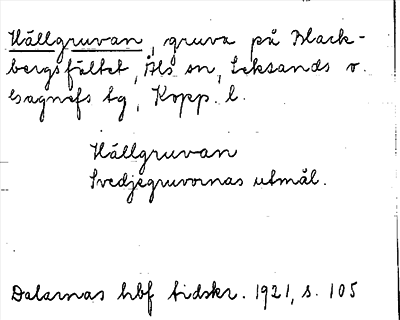 Hällgruvan, gruva på Black-
bergsfältet, Åls sn, Leksands o.
Gagnefs tg, Kopp. l.
Hällgruvan
Svedjegruvornas utmål.
Dalarnas hbf tidskr. 1921, s. 105